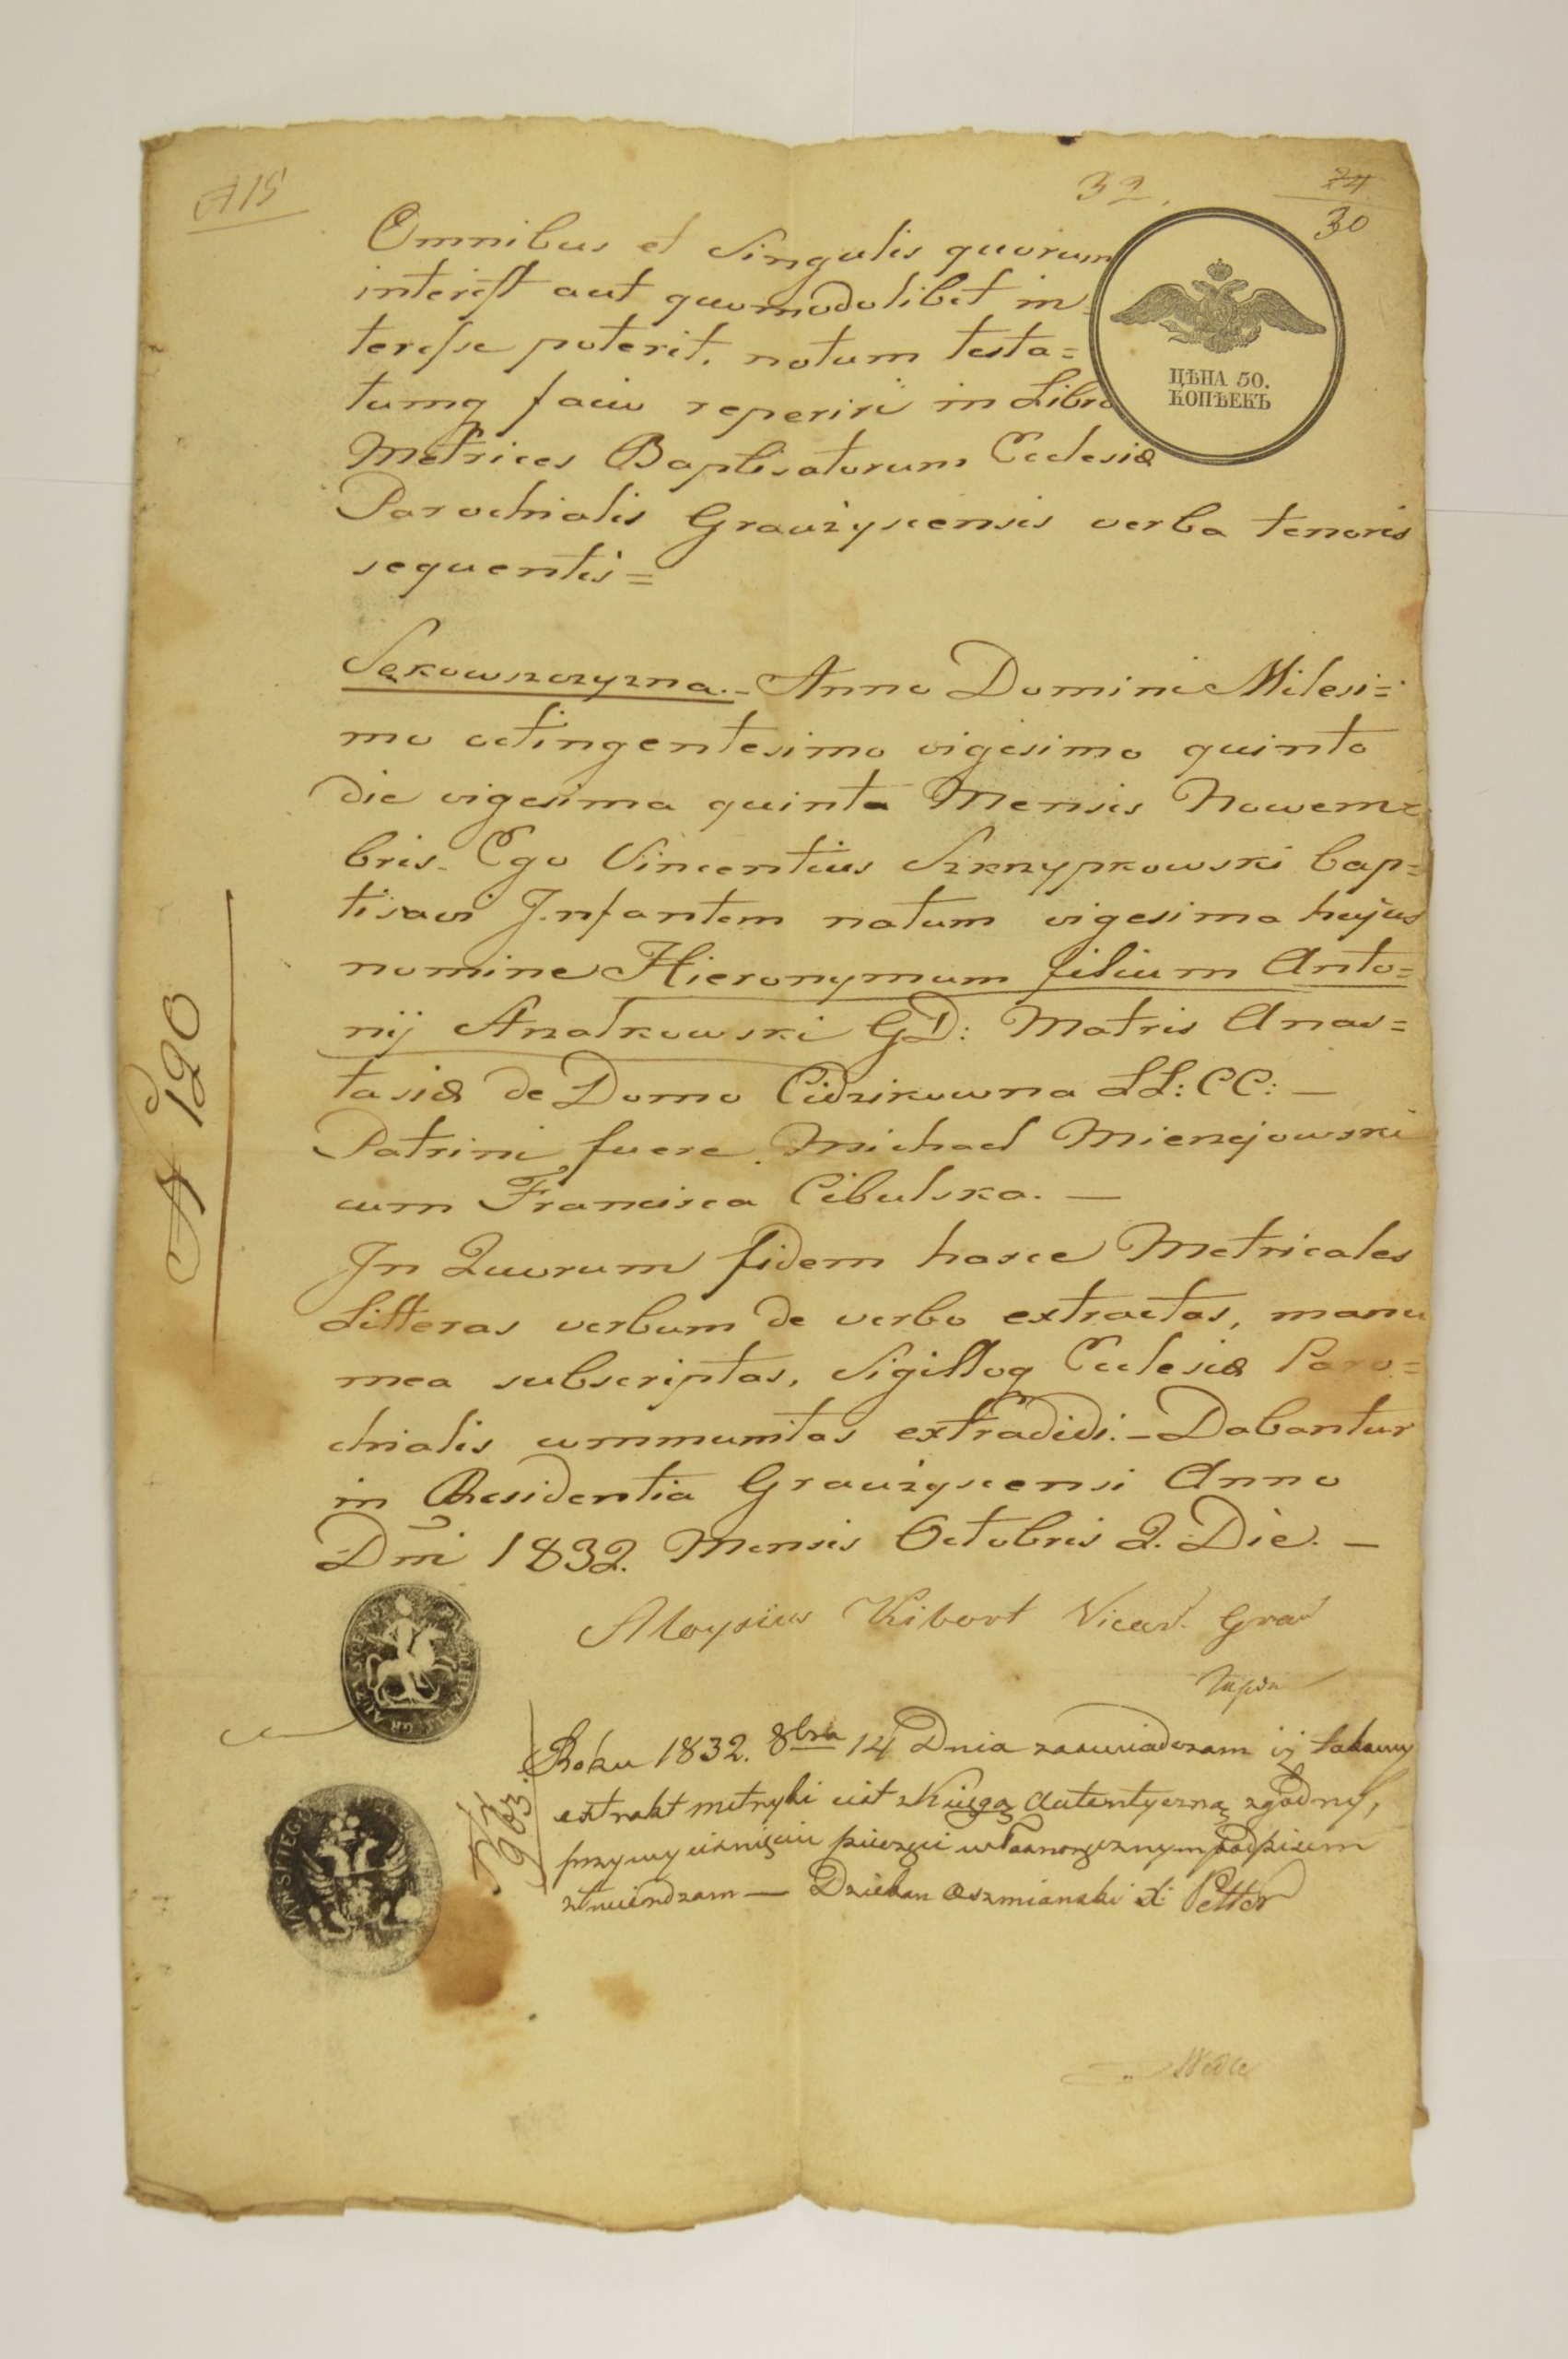 A 15
32.
24
30
Omnibus et Singulis quorum
interest aut quomodolibet in=
teresse poterit, notum testa=
tumq facio reperiri in Libro
Metrices Baptisatorum Ecclesiæ
Parochialis Grauzyscensis verba tenoris
sequentis=
ЦѢНА 50.
КОПѢЕКЪ
Sękowszczyzna.- Anno Domini Milesi=
mo octingentesimo vigesimo quinto
die vigesima quinta Mensis Nowem=
bris. Ego Vincentius Szkrzypkowski bap=
tisavi Infantem natum vigesima hujus
nomine Hieronymum filium Anto=
nij Azatkowski GD: Matris Anas=
tasiæ de Domo Cidzikowna LL: CC: —
Patrini fuere Michael Mierzejowski
cum Francisca Cibulska. —
In Quorum fidem hasce Metricales
Litteras verbum de verbo extractas, manu
mea subscriptas, Sigilloq Ecclesiæ Paro=
chialis communitas extradidi.- Dabantur
in Residentia Grauzyscensi Anno
Dni 1832. Mensis Octobris 2. Die. —
N 120
Aloysius Kibort Vicar. Grau
Roku 1832. 8bra 14 Dnia zaswiadczam iż takowy
extrakt metryki iest z Księgą Autentyczną zgodny,
przy wyciśnięciu pieczęci własnoręcznym podpisem
ztwierdzam — Dziekan Oszmianski X: Petter
N 963.